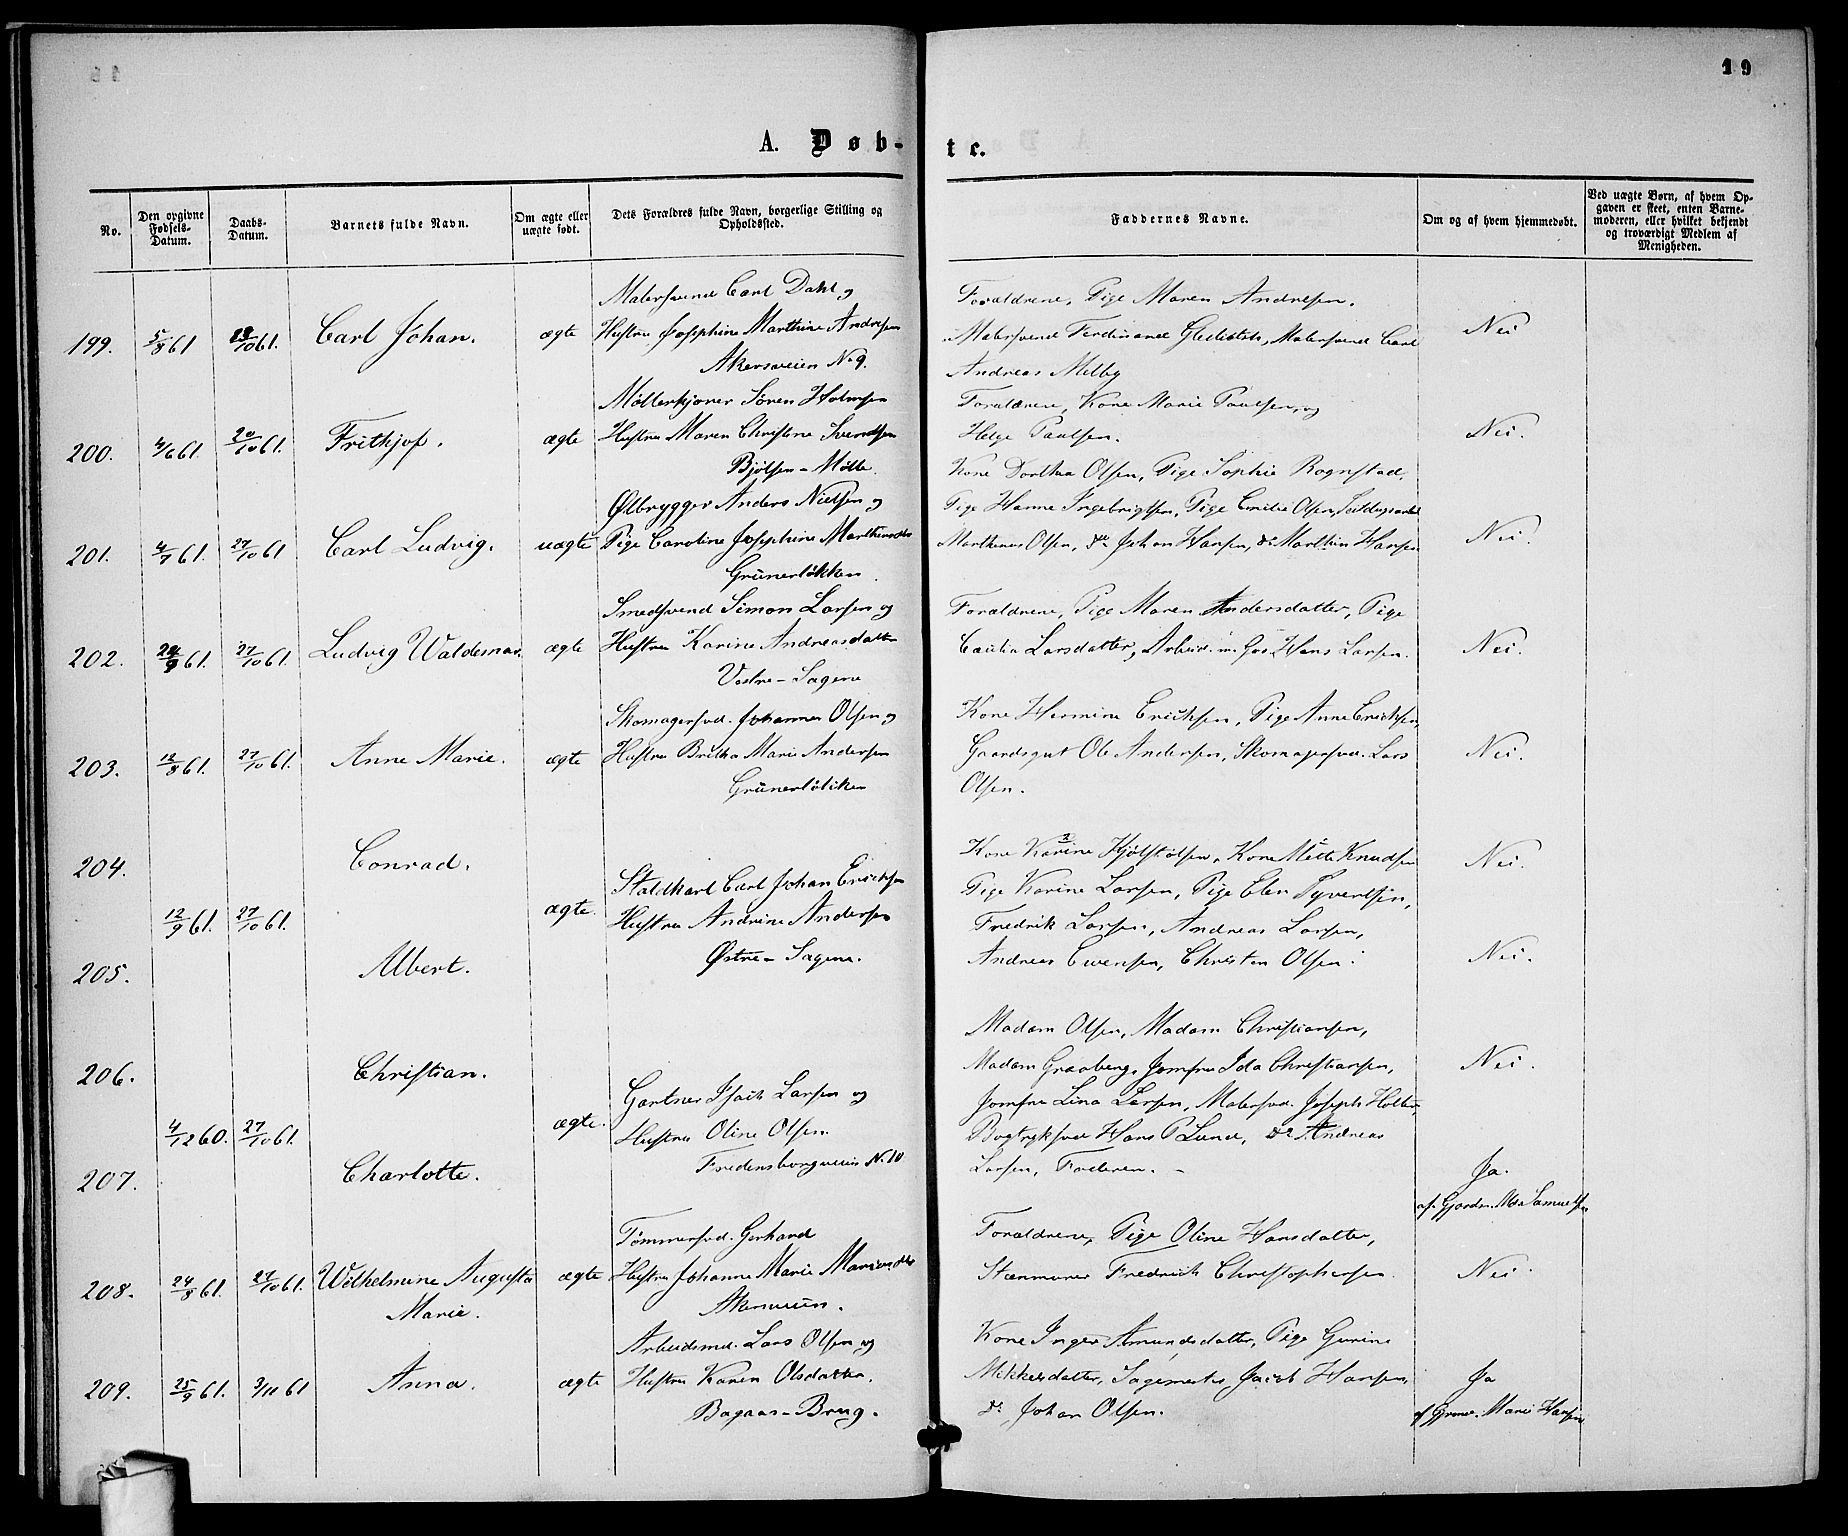 19
A. Døb-
te.
No.
Den opgivne Fødsels-Datum.
Daabs-Datum.
Barnets fulde Navn.
Om ægte eller uægte født.
Dets Forældres fulde Navn, borgerlige Stilling og Opholdssted.
Faddernes Navne.
Om og af hvem hjemmedøbt.
Ved uægte Børn, af hvem Opgaven er skeet, enten Barnemoderen, eller hvilket bekjendt og troværdigt Medlem af Menigheden.
Malersvend Carl Dahl og
199. 5/8 61 13/10 61. Carl Johan. ægte Hustru Josephine Marthine Andresen
Akersveien No 9.
Forældrene, Pige Maren Andresen.
Malersvend Ferdinand Gleditsch, Malersvend Carl
Andreas Melby
Nei
Møllerkjører Sören Holmsen
200. 4/6 61. 20/10 61. Frithjof. ægte Hustru Maren Christine Svendsen
Bjölsen-Mölle.
Forældrene, Kone Marie Paulsen, og
Helge Paulsen.
Nei.
Ølbrygger Anders Nielsen og
201. 4/7 61. 27/10 61 Carl Ludvig. uægte Pige Caroline Josephine Marthinsdtr
Grünerløkken.
Kone Dorthea Olsen, Pige Sophie Rognstad,
Pige Hanne Ingebrigtsen, Pige Emilie Olsen,
Marthinus Olsen, do Johan Hansen, do Marthin Hansen
Nei.
Smedsvend Simon Larsen og
202. 24/9 61. 27/10 61. Ludvig Waldemar. ægte Hustru Karine Andreasdatter
Vestre-Sagene
Forældrene, Pige Maren Andersdatter, Pige
Cæcilia Larsdatter, Hans Larsen.
Nei.
Skomagersvd. Johannes Olsen og
203. 12/8 61. 27/10 61. Anne Marie. ægte Hustru Britha Marie Andersen
Grünerlökken
Kone Hermine Ericksen, Pige Anne Ericksen,
Gaardsgut Ole Andersen, Skomagersvd. Lars
Olsen.
Nei.
204. Conrad.
Staldkarl Carl Johan Ericksen
12/9 61. 27/10 61. ægte. Hustru Andrine Andersen
Østre-Sagene.
205. Albert.
Kone Karine Kjölstolsen, Kone Mette Knudsen
Pige Karine Larsen, Pige Elen Syvertsen,
Fredrik Larsen, Andreas Larsen,
Andreas Evensen, Christen Olsen.
Nei.
Nei.
206. Christian.
Gartner Isach Larsen og
4/12 60. 27/10 61. ægte. Hustru Oline Olsen.
Fredensborgveien No 10
207. Charlotte.
Madam Olsen, Madam Christiansen,
Madam Graaberg, Jomfru Ida Christiansen,
Jomfru Lina Larsen, Malersvd. Joseph Holter
Bogtryksvd Hans P Lund, do Andreas
Larsen, Faderen.
Nei.
Ja.
af. Gjordm. Samuelsen
Tömmersvd. Gerhard
208. 24/8 61. 27/10 61. Wilhelmine Augusta ægte Hustru Johanne Marie
Marie. Akersveien.
Forældrene, Pige Oline Hansdatter,
Stenmurer Fredrick Christophersen.
Nei.
Arbeidsmd. Lars Olsen og
209. 25/9 61. 3/11 61 Anna. ægte Hustru Karen Olsdatter.
Bagaas-Brug.
Kone Inger Amundsdatter, Pige Gurine
Mikkelsdatter, Sagmester Jacob Hansen,
do Johan Olsen.
Ja
af Marie Hansen